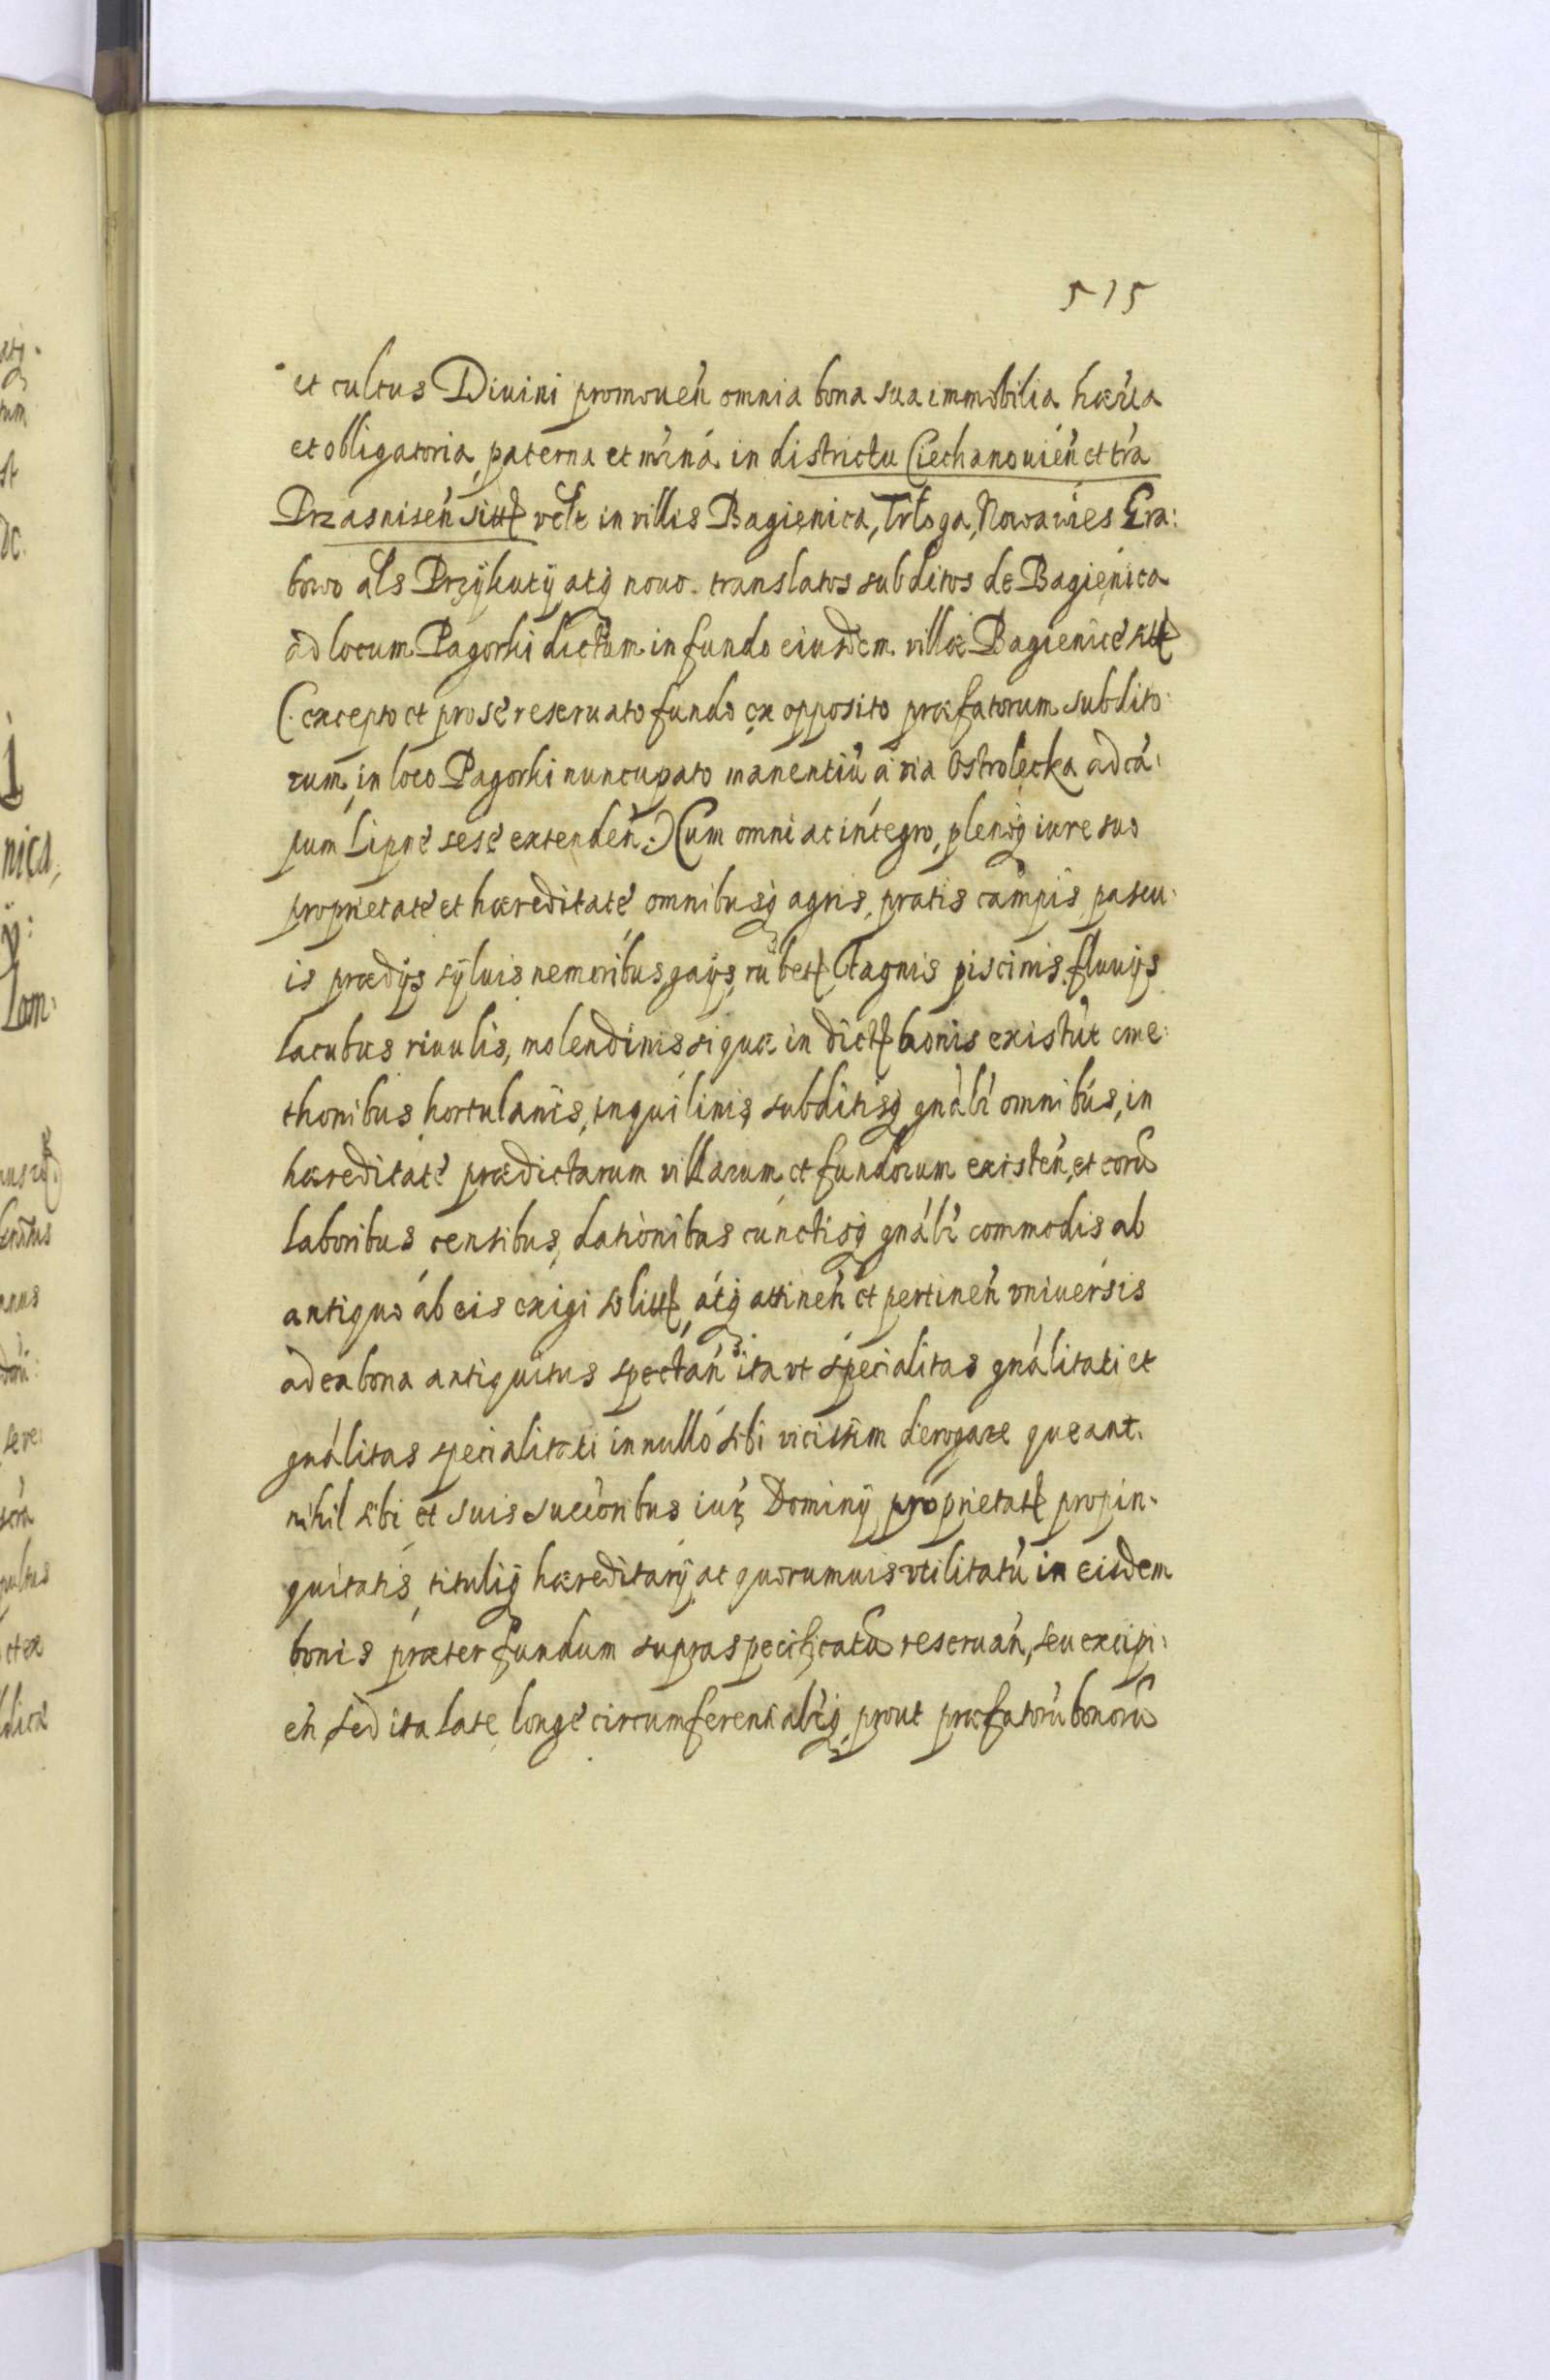 515
et cultus Diuini promoueń omnia bona sua immobilia hæria
et obligatoria, paterna et mr̃ná in districtu Ciechanouień et tr̃a
Przasniseń sittꝭ vꝫlt in villis Bagienica, Trłoga, Nowawies Gra:
bowo als Przÿkutÿ atqꝫ nouo translatos subditos de Bagienica
ad locum Pagorki dictum in fundo eiusdem villæ Bagienicé sittꝭ
(: excepto et pro sé reseruato fundo ex opposito præfatorum subdito:
rum, in loco Pagorki nuncupato manentiũ á via Ostrolęcka ad cá:
pum Lipné sesé extendeń :) Cum omni ac integro, plenoqꝫ iure suo
proprietaté et hæreditaté omnibusqꝫ agris, pratis campis pascu:
is prædijs sÿluis nemoribus, gaijs, rubetꝭ stagnis piscinis fluuijs
lacubus riuulis, molendinis si quæ in dictꝭ bonis existũt cme:
thonibus hortulanis, inquilinis subditisqꝫ gnálr̃ omnibus, in
hæreditaté prædictarum villarum et fundorum existeń, et eorũ
laboribus censibus, dationibus cunctisqꝫ gnálr̃ commodis ab
antiquo ab eis exigi solittꝭ, atqꝫ attineń et pertineń vniuersis
ad ea bona antiquitus spectań ita vt specialitas gnálitati et
gnálitas specialitati in nulló sibi vicissim derogare queant.
nihil sibi et suis succõribus iurꝭ Dominij proprietatꝭ propin:
quitatis, tituliqꝫ hæreditarij, ac quorumuis vtilitatũ in eisdem
bonis præter fundum supraspecificatũ reseruań, seu excipi:
eń sed ita late longé circumferentialr̃qꝫ, prout præfatorũ bonorũ